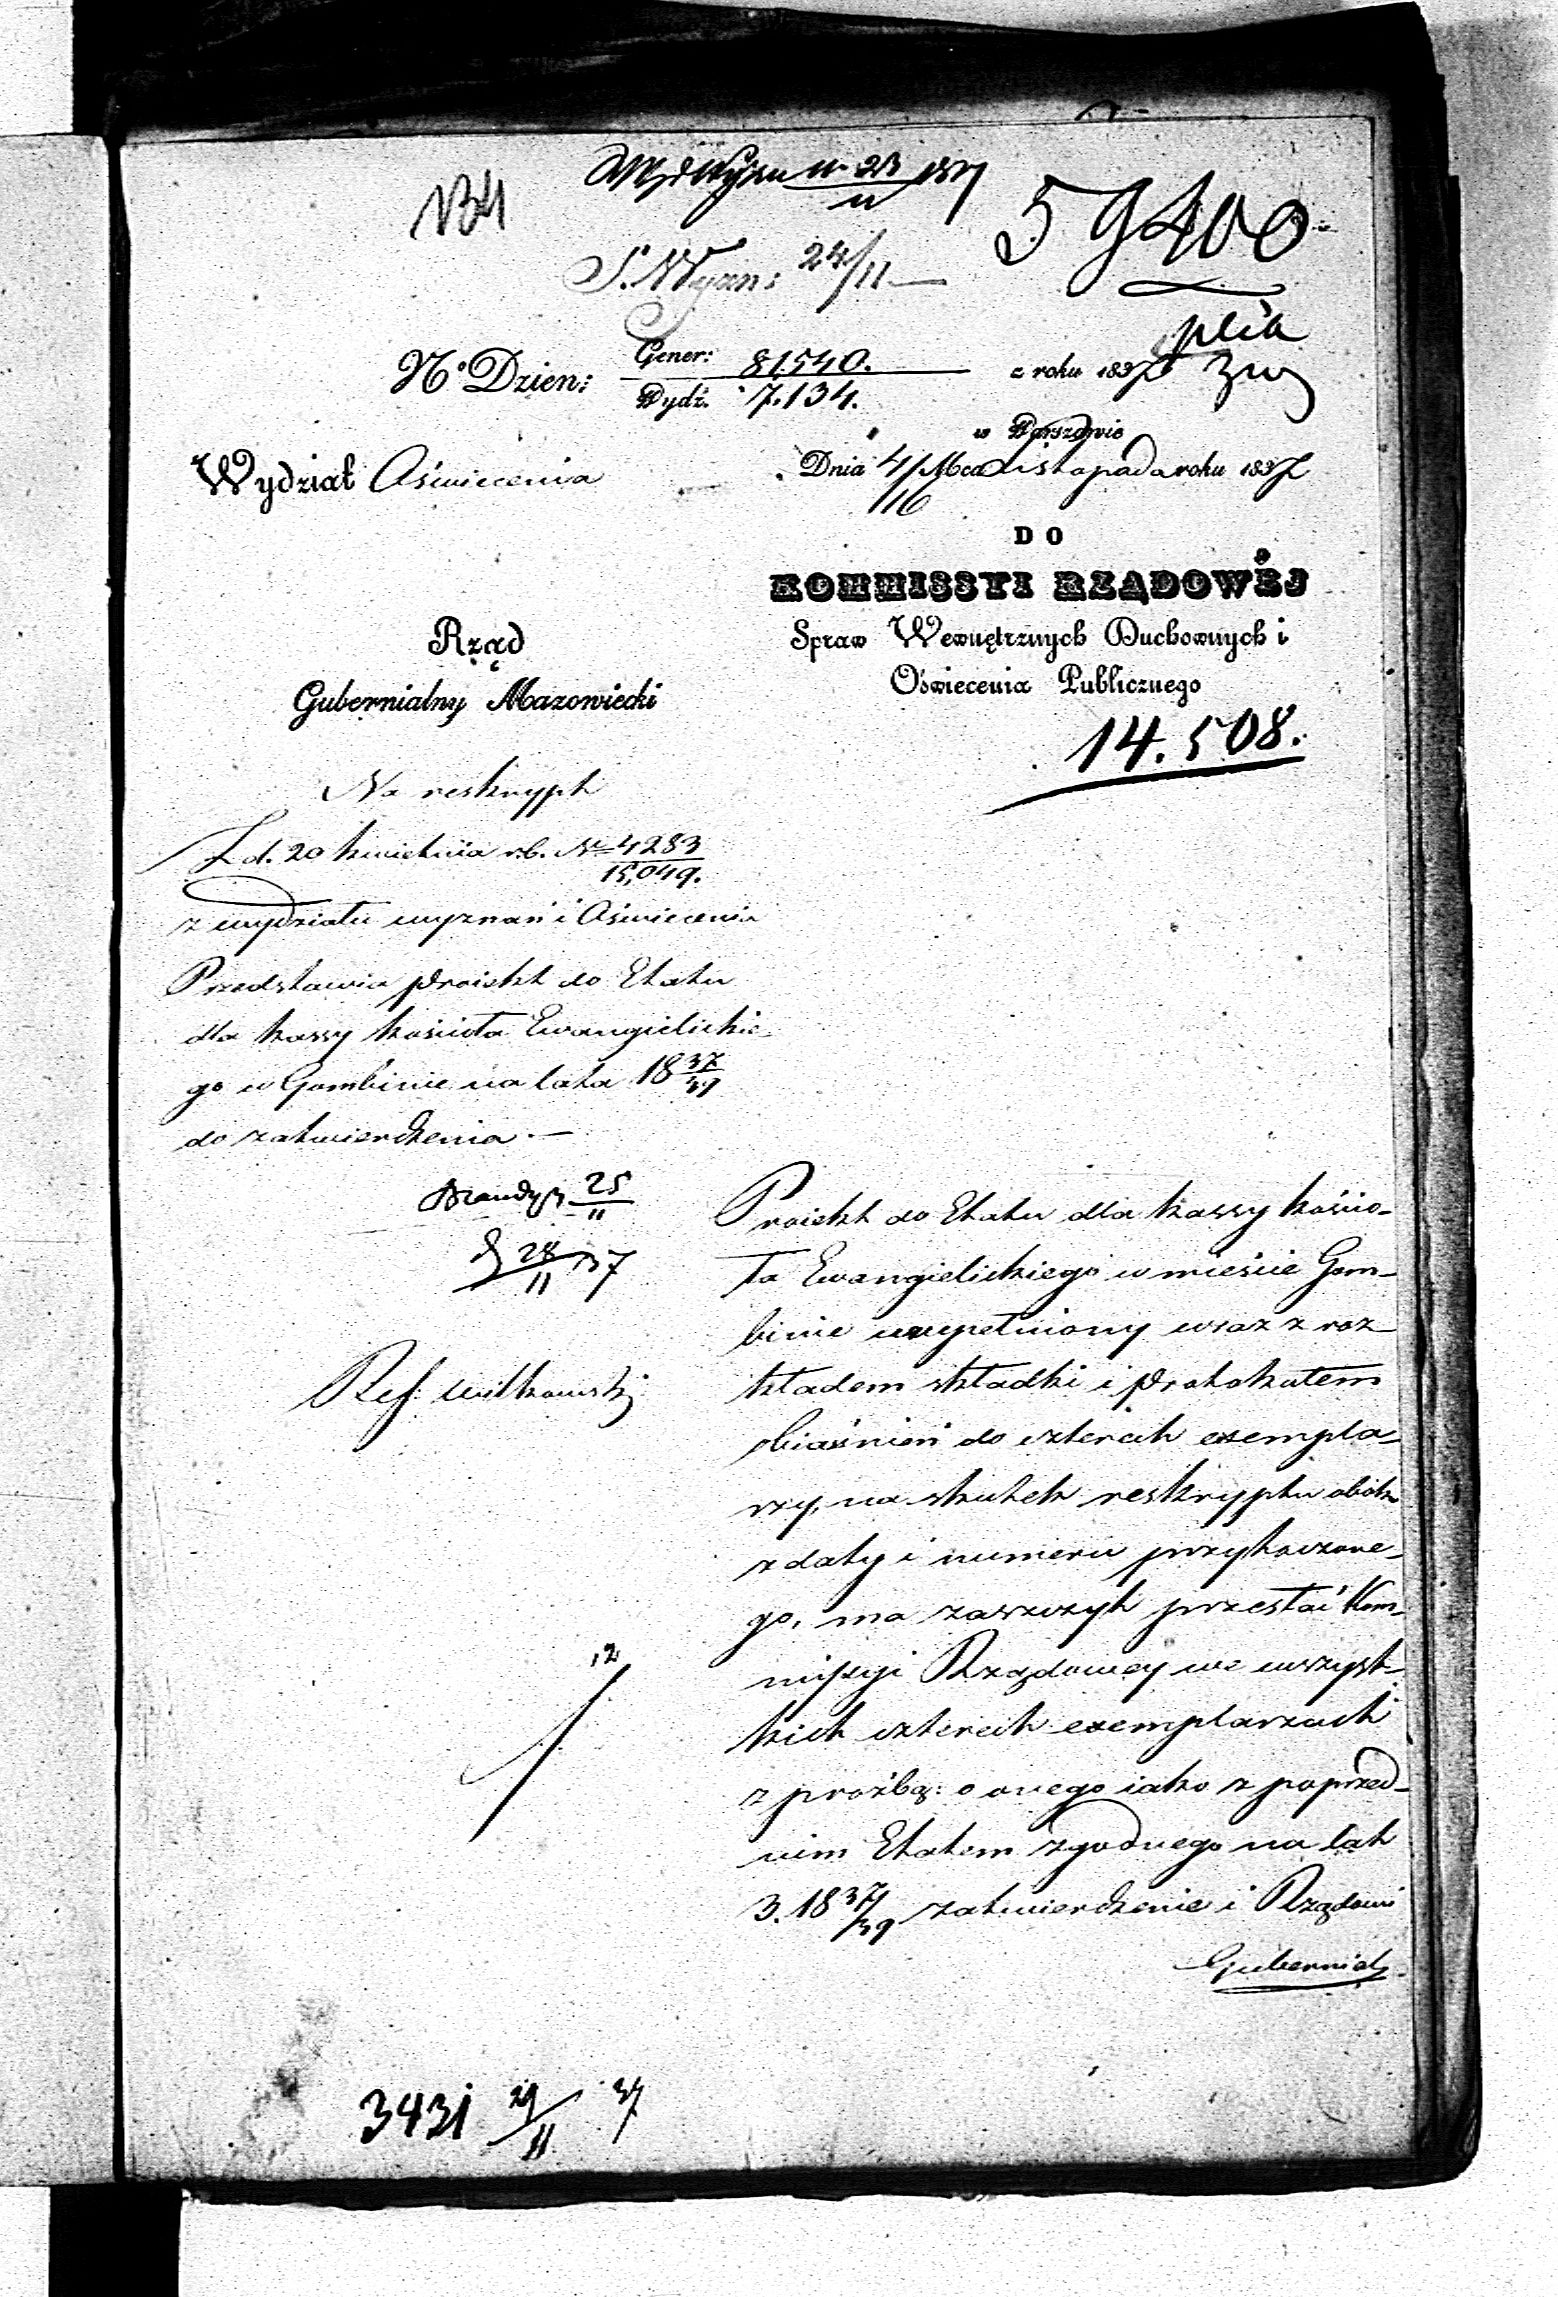 134
59400
S. Wyzn: 24/11
plik
N.º Dzien: Gener: 81540. z roku 1837
Wydż. 7.134.
w Warszawie
Wydział Oświecenia
Dnia 4/16 Mca Listopada roku 1837
DO
KOMMISSYI RZĄDOWÉJ
Spraw Wewnętrznych Duchownych i
Oświecenia Publicznego
14.508.
Rząd
Gubernialny Mazowiecki
Na reskrypt
Z d. 20 kwietnia r.b. Nº 4283
15,049.
z wydziału wyznań i Oświecenia
Przedstawia proiekt do Etatu
dla kassy kościoła Ewangielickie-
go w Gombinie na lata 18 37/39
do zatwierdzenia. —
25/11
28/11 37
Ref. Witkowski
Proiekt do Etatu dla kassy kościo-
ła Ewangielickiego w mieście Gom-
binie uzupełniony wraz z roz-
kładem składki i protokułem
obiaśnień do czterech exempla-
rzy, na skutek reskryptu obok
z daty i numeru przytoczone-
go, ma zaszczyt przesłać Kom-
missyi Rządowey we wszyst-
kich czterech exemplarzach
z prośbą: o onego iako z poprzed-
nim Etatem zgodnego na lat
3. 18 37/39 zatwierdzenie i Rządowi
Gubernial
12
3431 29/11 37